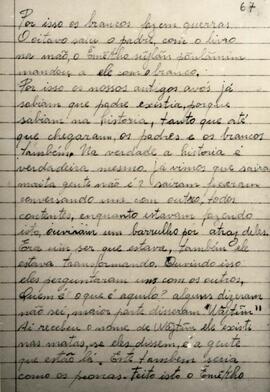 67
Por isso os brancos fazem guerras.
O oitavo saiu o padre, com o livro
na mão, o Ëmëkho
mandou a ele com o branco.
Por isso os nossos antigos avós já
sabiam que padre existia, porque
sabiam na história, tanto que até
que chegaram, os padres e os brancos
também. Na verdade a história é
verdadeira mesmo. Já vimos que saira
muita gente não é? sairam ficaram
conversando uns com outro, todos
contentes, enquanto estavam fazendo
isto, ouviram um barrulho por atraz deles.
Era um ser que estava, também ele
estava transformando. Ouvindo isso
eles perguntaram uns com os outros,
Quêm é o que é aquilo? alguns diziam
não sei, maior parte disseram "Wãjtĩm"
Ai recebeu o nome de Wãjtĩm ele existi
nas matas, se eles dissem, é a gente
que está lá. Este tambem seria
como os peonas. Feito isto o Ëmëkho